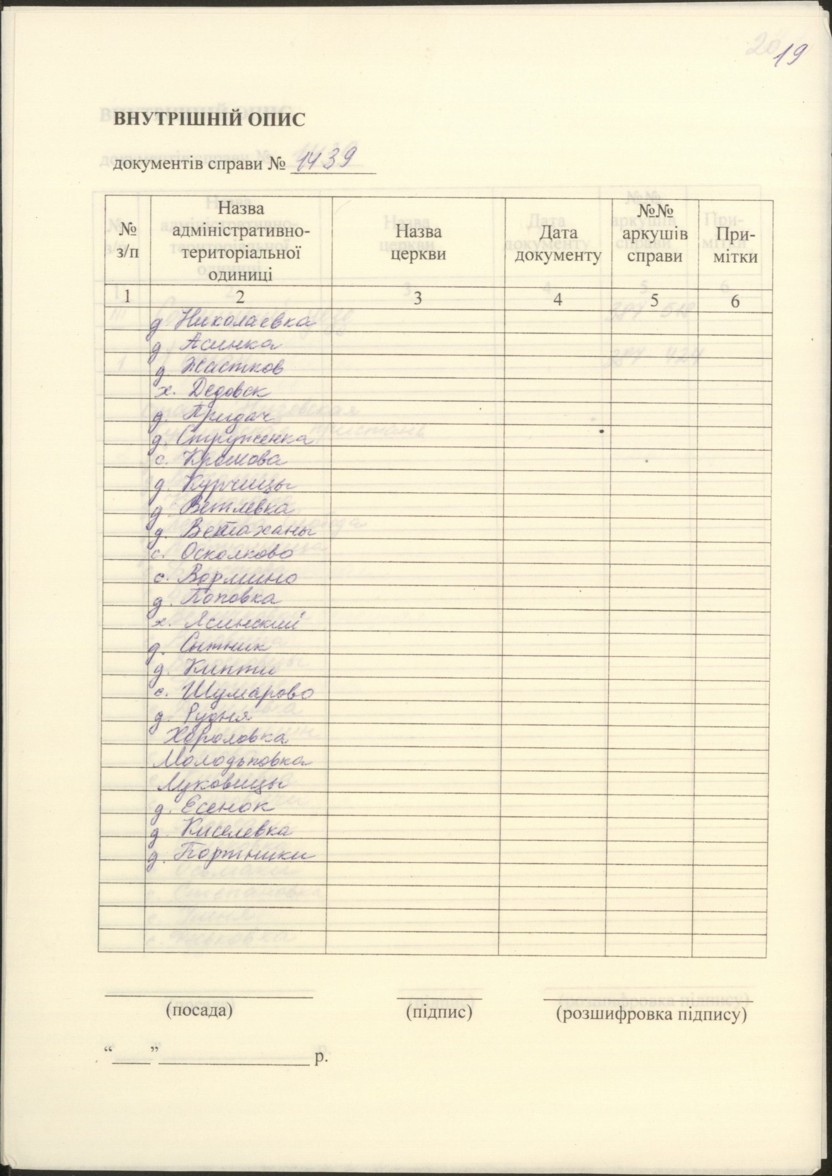 19
ВНУТРІШНІЙ ОПИС
документів справи № 1439
№ з/п
Назва адміністративно-територіальної одиниці
Назва церкви
Дата документу
№№ аркушів справи
При-мітки
1 2 3 4 5 6
д. Николаевка
д. Асинка
д. Жастков
х. Дедовск
д. Придач
д. Стружёнка
с. Кремова
д. Курчицы
д. Ветлевка
д. Ветаханы
с. Осколково
с. Вормино
д. Поповка
х. Ясинский
д. Сытник
д. Кипти
с. Шумарово
д. Рудня
Хороловка
Молодьповка
Луковицы
д. Есенок
д. Киселевка
д. Портники
(посада) (підпис) (розшифровка підпису)
“___”_______________ р.